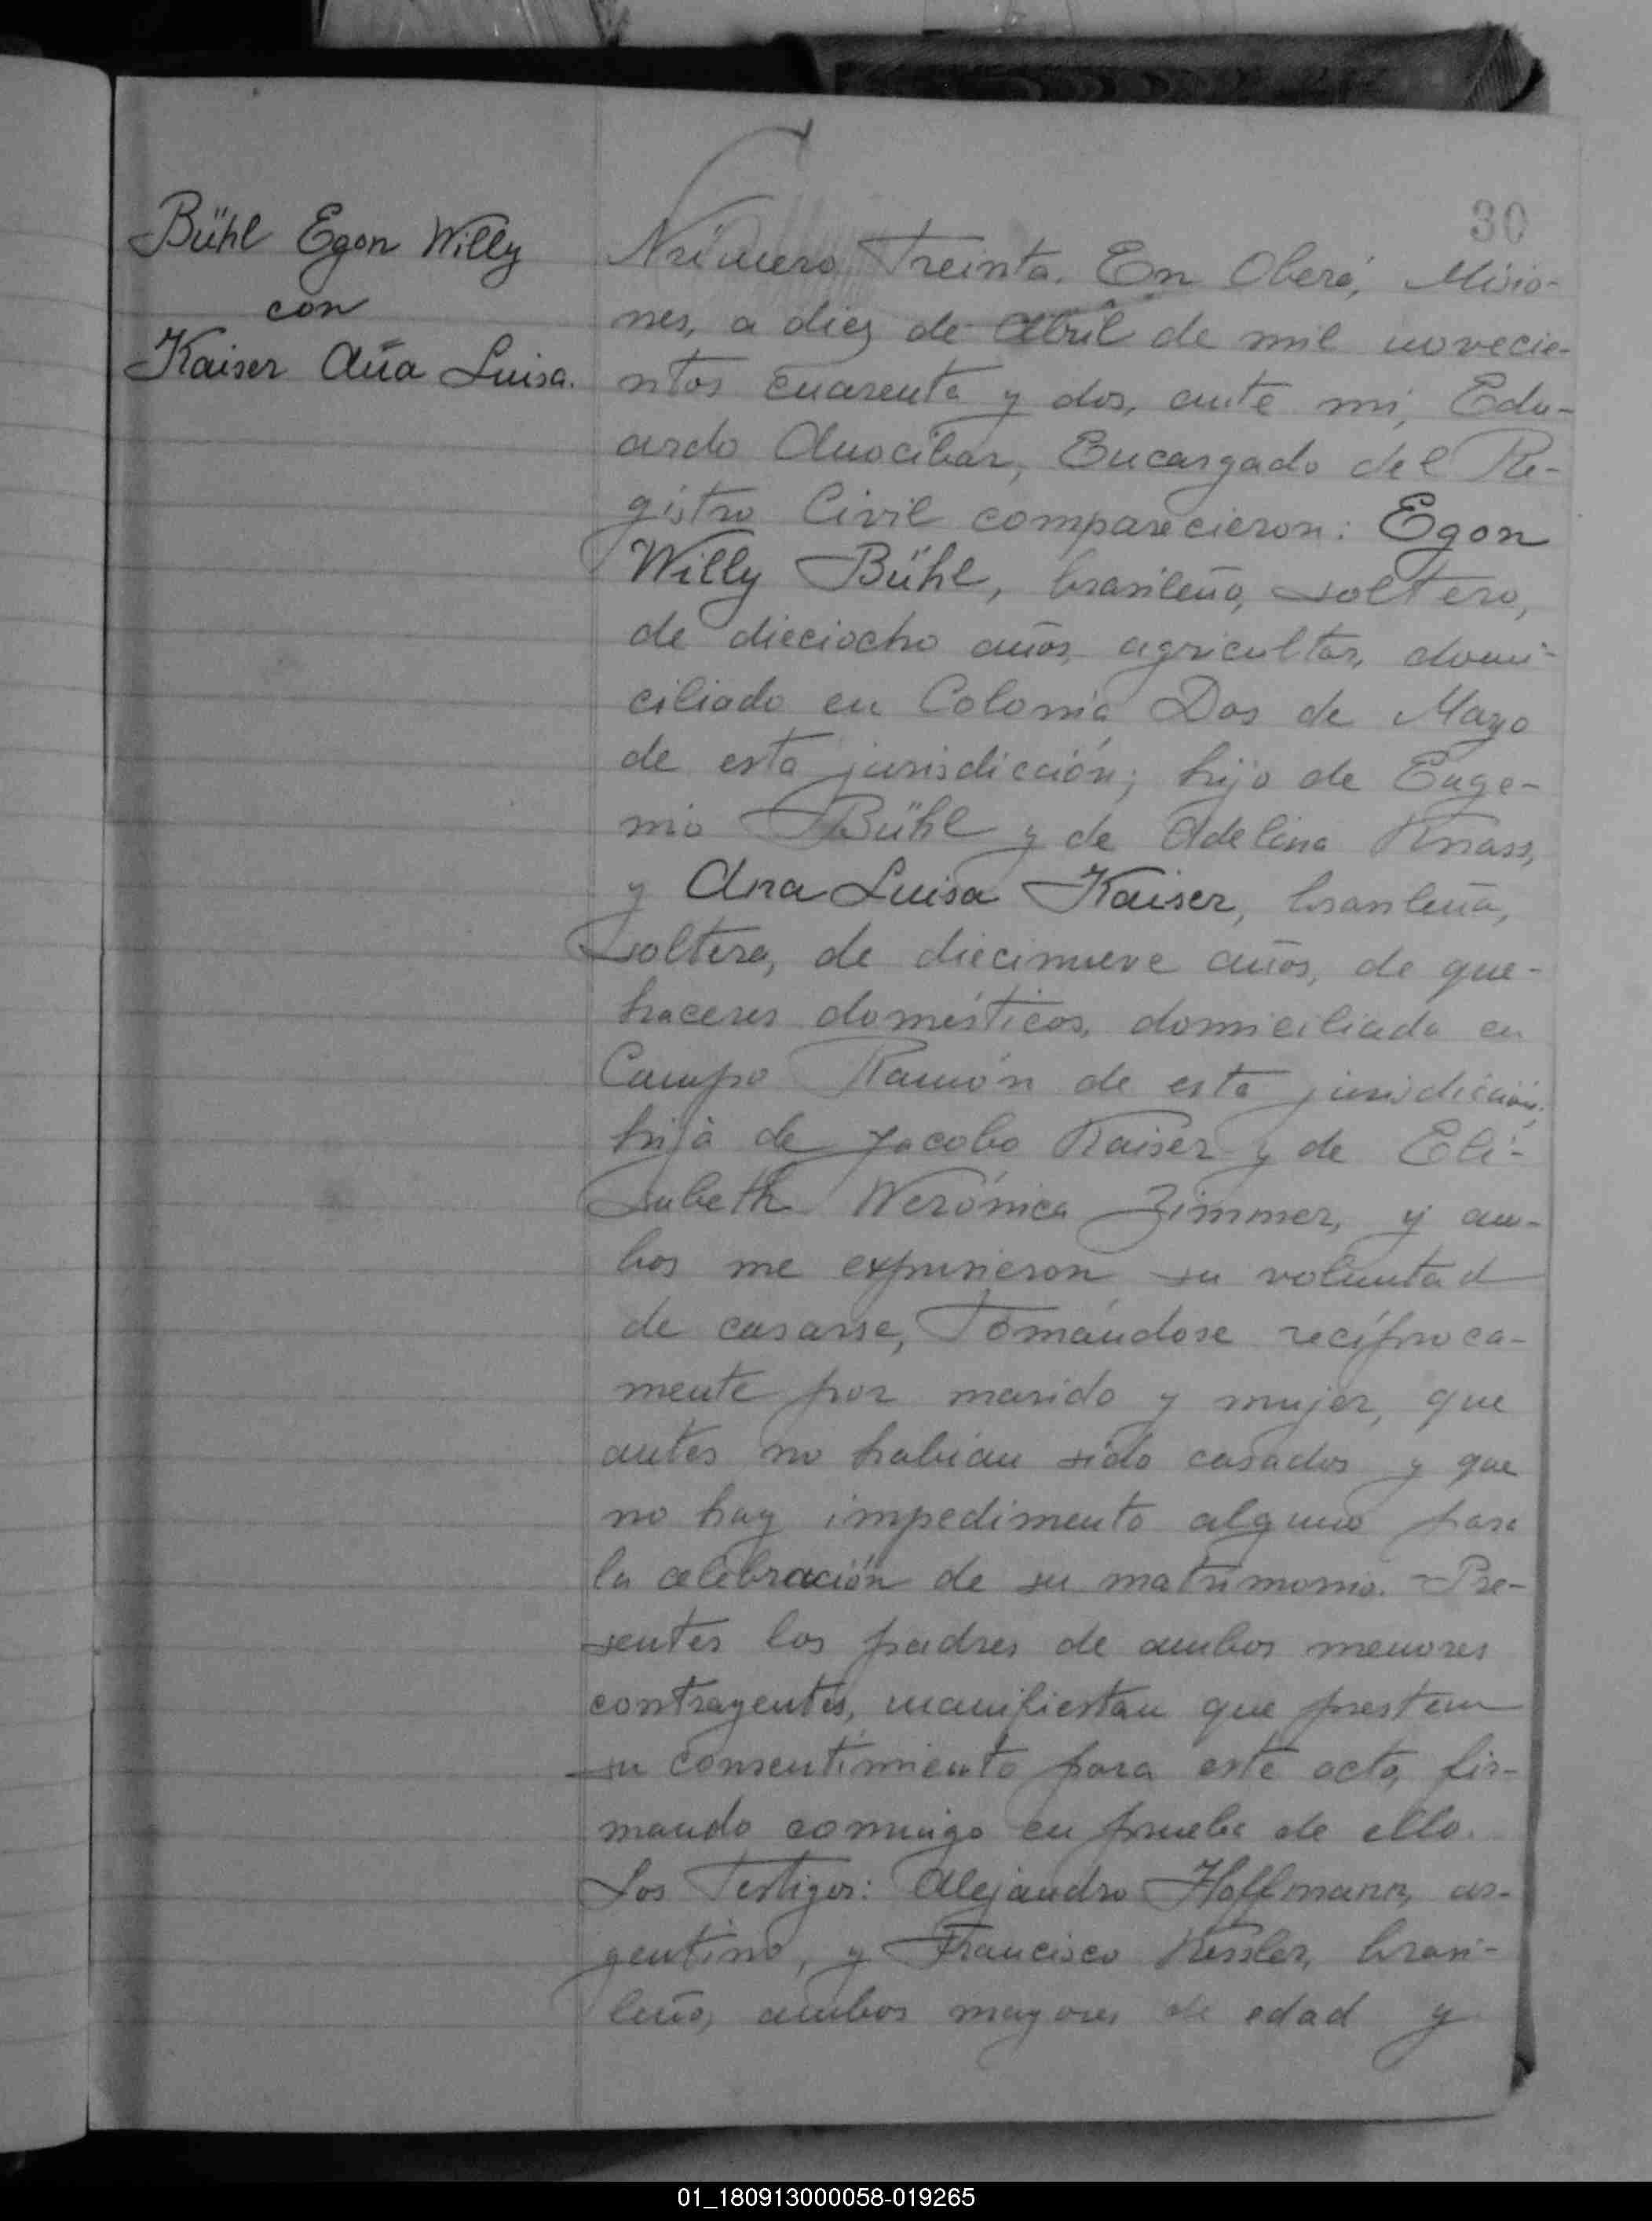 Bühl Egon Willy
con
Kaiser Ana Luisa.
30
Número Treinta. En Oberá, Misio-
nes, a diez de Abril de mil novecie-
ntos cuarenta y dos, ante mi, Edu-
ardo Anocibar, Encargado del Re-
gistro Civil comparecieron: Egon
Willy Bühl, brasileño, soltero,
de dieciocho años, agricultor, domi-
ciliado en Colonia Dos de Mayo
de esta jurisdicción; hijo de Euge-
nio Bühl y de Adelina Knass,
y Ana Luisa Kaiser, brasileña,
soltera, de diecinueve años, de que-
haceres domésticos, domiciliada en
Campo Ramón de esta jurisdicción;
hija de Jacobo Kaiser y de Eli-
sabeth Werónica Zimmer, y am-
bos me expusieron su voluntad
de casarse, tomándose recíproca-
mente por marido y mujer, que
antes no habían sido casados y que
no hay impedimento alguno para
la celebración de su matrimonio. Pre-
sentes los padres de ambos menores
contrayentes, manifiestan que prestan
su consentimiento para este acto, fir-
mando conmigo en prueba de ello.
Los Testigos: Alejandro Hoffmann, ar-
gentino, y Francisco Kessler, brasi-
leño, ambos mayores de edad y
01_180913000058-019265